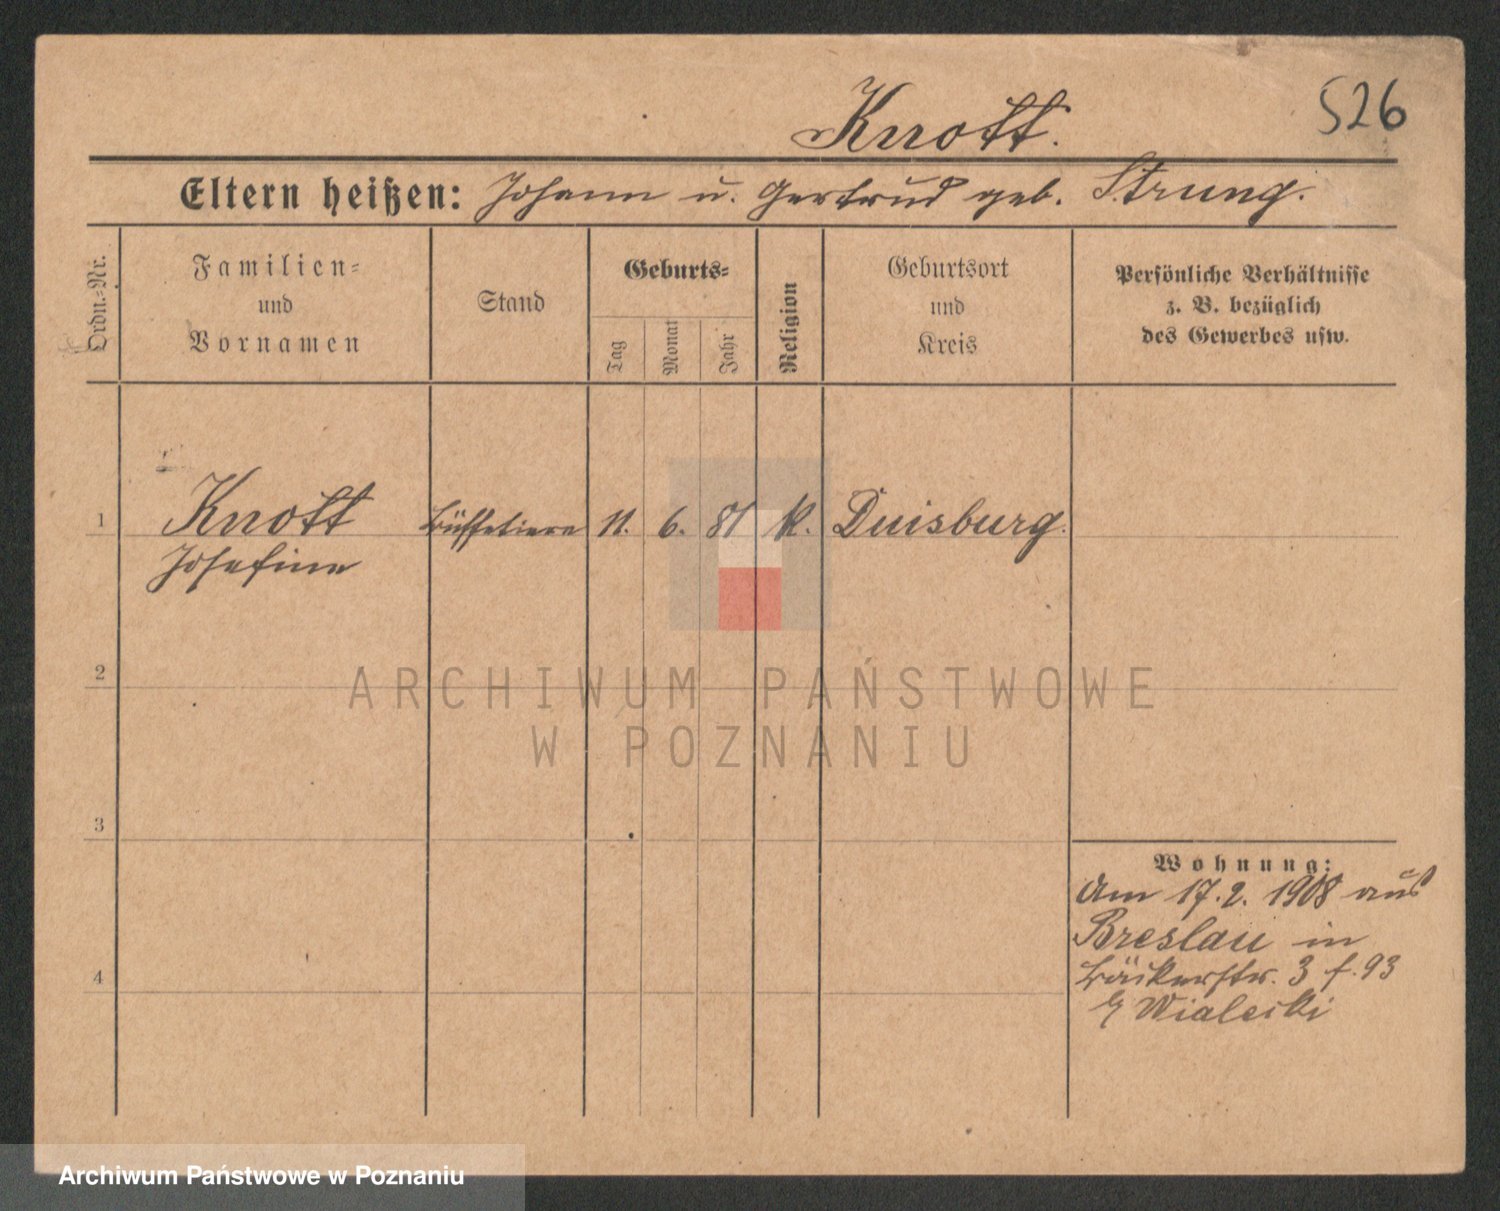 Knott.
526
Eltern heißen: Johann u. Gertrud geb. Strung.
Ordn.-Nr.
Familien-
und
Vornamen
Stand
Geburts-
Tag
Monat
Jahr
Religion
Geburtsort
und
Kreis
Persönliche Verhältnisse
z. B. bezüglich
des Gewerbes usw.
1
Knott
Josefine
Büffetiere
11.
6.
81
k.
Duisburg.
2
ARCHIWUM PAŃSTWOWE
W POZNANIU
3
Wohnung:
Am 17.2.1908 aus
Breslau in
Bäckerstr. 3 f. 93
4
b/ Wialecki
Archiwum Państwowe w Poznaniu